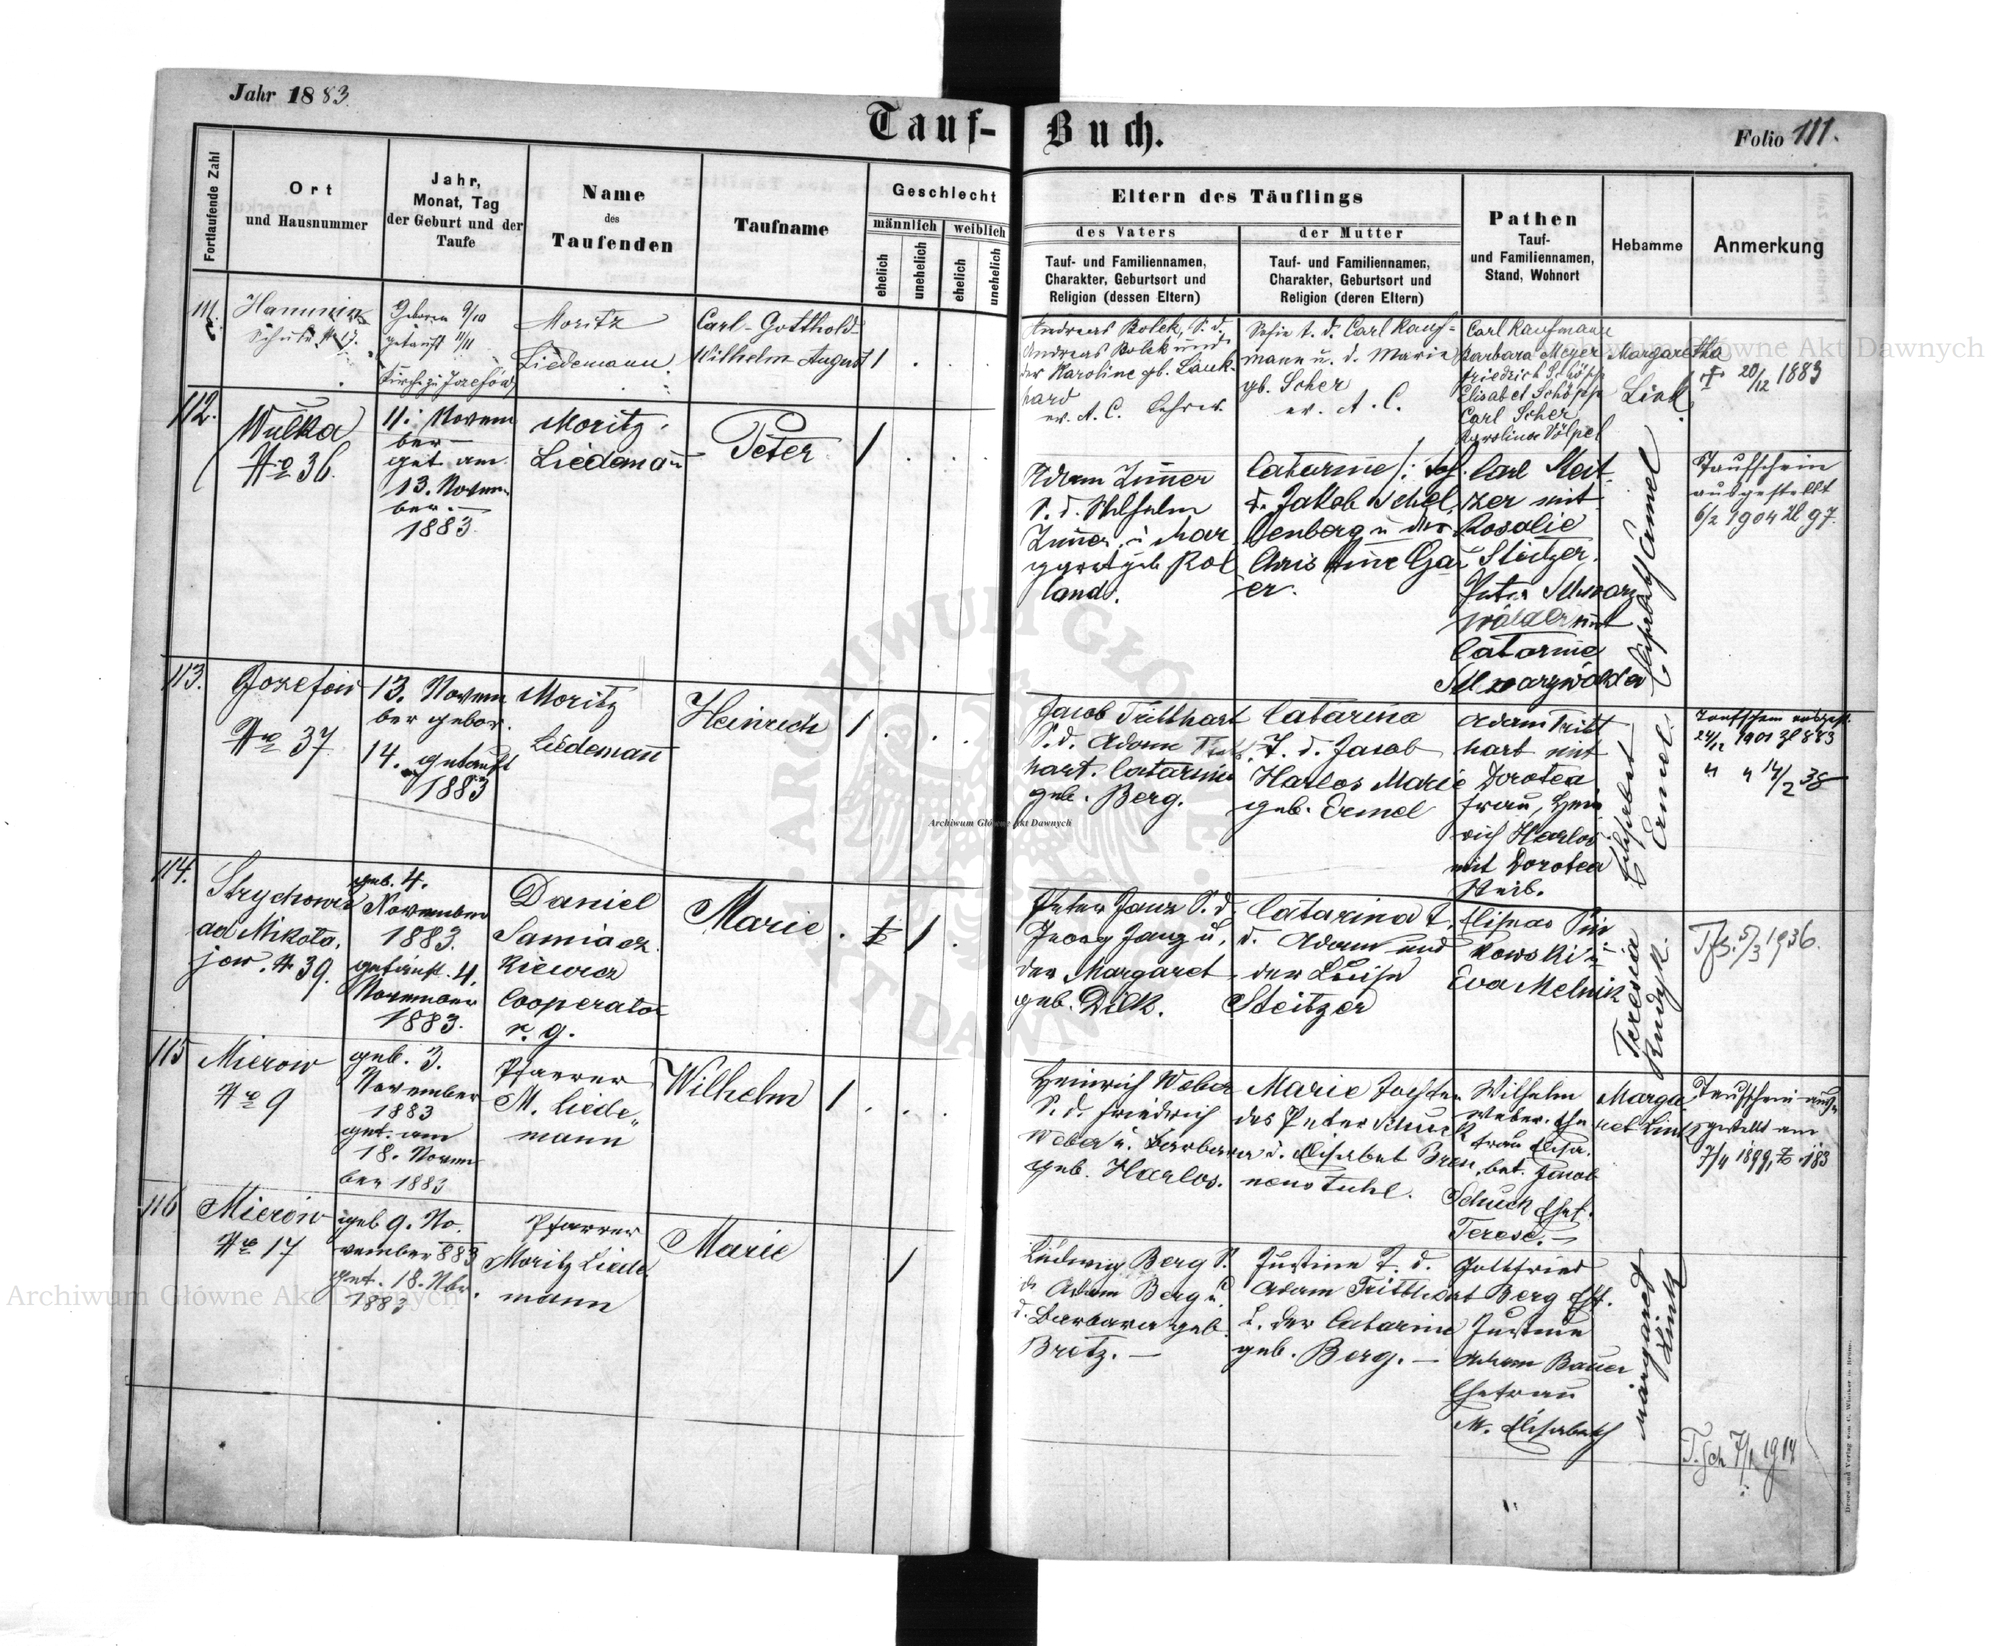 Jahr 1883.
Tauf-Buch.
Folio 111.
Fortlaufende Zahl
Ort
und Hausnummer
Jahr,
Monat, Tag
der Geburt und der
Taufe
Name
des
Taufenden
Taufname
Geschlecht
männlich
weiblich
ehelich
unehelich
ehelich
unehelich
Eltern des Täuflings
des Vaters
Tauf- und Familiennamen,
Charakter, Geburtsort und
Religion (dessen Eltern)
der Mutter
Tauf- und Familiennamen,
Charakter, Geburtsort und
Religion (deren Eltern)
Pathen
Tauf-
und Familiennamen,
Stand, Wohnort
Hebamme
Anmerkung
111.
Geboren 9/10
getauft 11/11
Moritz
Liedemann.
Carl-Gotthold-
Wilhelm August
1
Andreas Bolek, S. d.
Andreas Bolek und
der Karoline gb.
ev. A. C. Lehrer.
Sofie t. d. Carl Kauf-
mann u. d. Marie
gb. Scher
ev. A. C.
Carl Kaufmann
Barbara Meyer
Friedrich Schöpp
Elisabet Schöpp
Carl Scher
Karolina Völpel
Margaretha
Link.
† 20/12 1883
112.
Wulka
No 36.
11. Novem
ber
get. am
13. Novem
ber.
1883.
Moritz
Liedemann
Peter
1
Adam Zimmer
S. d. Wilhelm
Zimmer u. Mar
garet geb. Rol
land.
Catarine
d. Jakob Schel
lenberg u der
Christine Gau
er.
Carl Steit
zer mit
Rosalie
Steitzer.
Peter Schwarz
wälder mit
Catarine
Schwarzwälder
Elisabeth
Taufschein
ausgestellt
6/2 1904 Zl 97.
113.
Josefow
No 37
13. Novem
ber gebor.
14. getauft
1883
Moritz
Liedemann
Heinrich
1
Jacob Tritthart
S. d. Adam Tritt
hart. Catarina
geb. Berg.
Catarina
T. d. Jacob
Harlos Marie
geb. Ermel
Adam Tritt
hart mit
Dorotea
Frau, Hein
rich Harlos
mit Dorotea
Weib.
Elisabet
Ermel.
Taufschein ausgest.
24/12 1901 Zl 883
" " 14/2 38
114.
Strychowce
ad Mikoła.
jow. No 39.
geb. 4.
November
1883.
getauft. 4.
November
1883.
Daniel
Samiacz.
Kiewicz
Cooperator
r. g.
Marie
1
Peter Janz S. d.
Georg Janz u.
der Margaret
geb. Dilk.
Catarina t.
d. Adam und
der Luise
Steitzer
Elisaus Pin
kowski u
Eva Melnik
Teresia
Rudyk.
Tfs. 5/3 1936.
115
Mierow
No 9
geb. 3.
November
1883
get. am
18. Novem
ber 1883
Pfarrer
M. Liede
mann
Wilhelm
1
Heinrich Weber
S. d. Friedrich
Weber u. Barbara
geb. Harlos.
Marie Tochter
des Peter Schuck
u. Elisabet Bren
nenstuhl.
Wilhelm
Weber. Ehe
frau Elisa.
bet. Jacob
Schuck Ehef.
Terese.
Marga
ret Link
Taufschein aus
gestellt am
7/4 1899, Z. 183
116
Mierow
No 17
geb 9. No.
vember 883
get. 18. Nbr.
1883
Pfarrer
Moritz Liede
mann
Marie
1
Ludwig Berg S.
d. Adam Berg u.
d. Barbara geb.
Bretz.
Justine T. d.
Adam Tritthart
u. der Catarine
geb. Berg.
Gottfried
Berg Ehf.
Justine
Adam Bauer
Ehefrau
M. Elisabeth
Margaret
Link
T.sch 7/1 1914
Druck und Verlag von C. Winiker in Brünn.
Archiwum Główne Akt Dawnych
Archiwum Główne Akt Dawnych
Archiwum Główne Akt Dawnych
ARCHIWUM GŁÓWNE AKT DAWNYCH